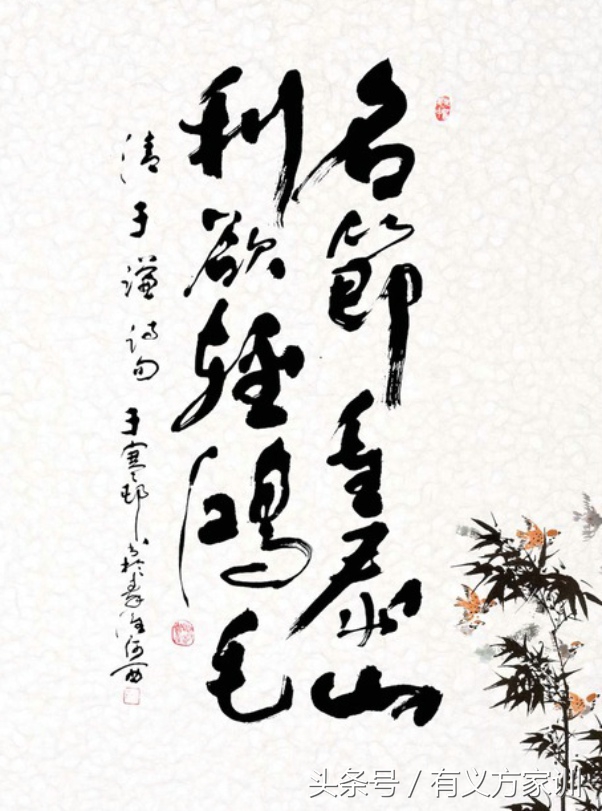 名節重泰山
利欲輕鴻毛
清于謙詩句
于寒邨書於
头条号 / 有义方家训